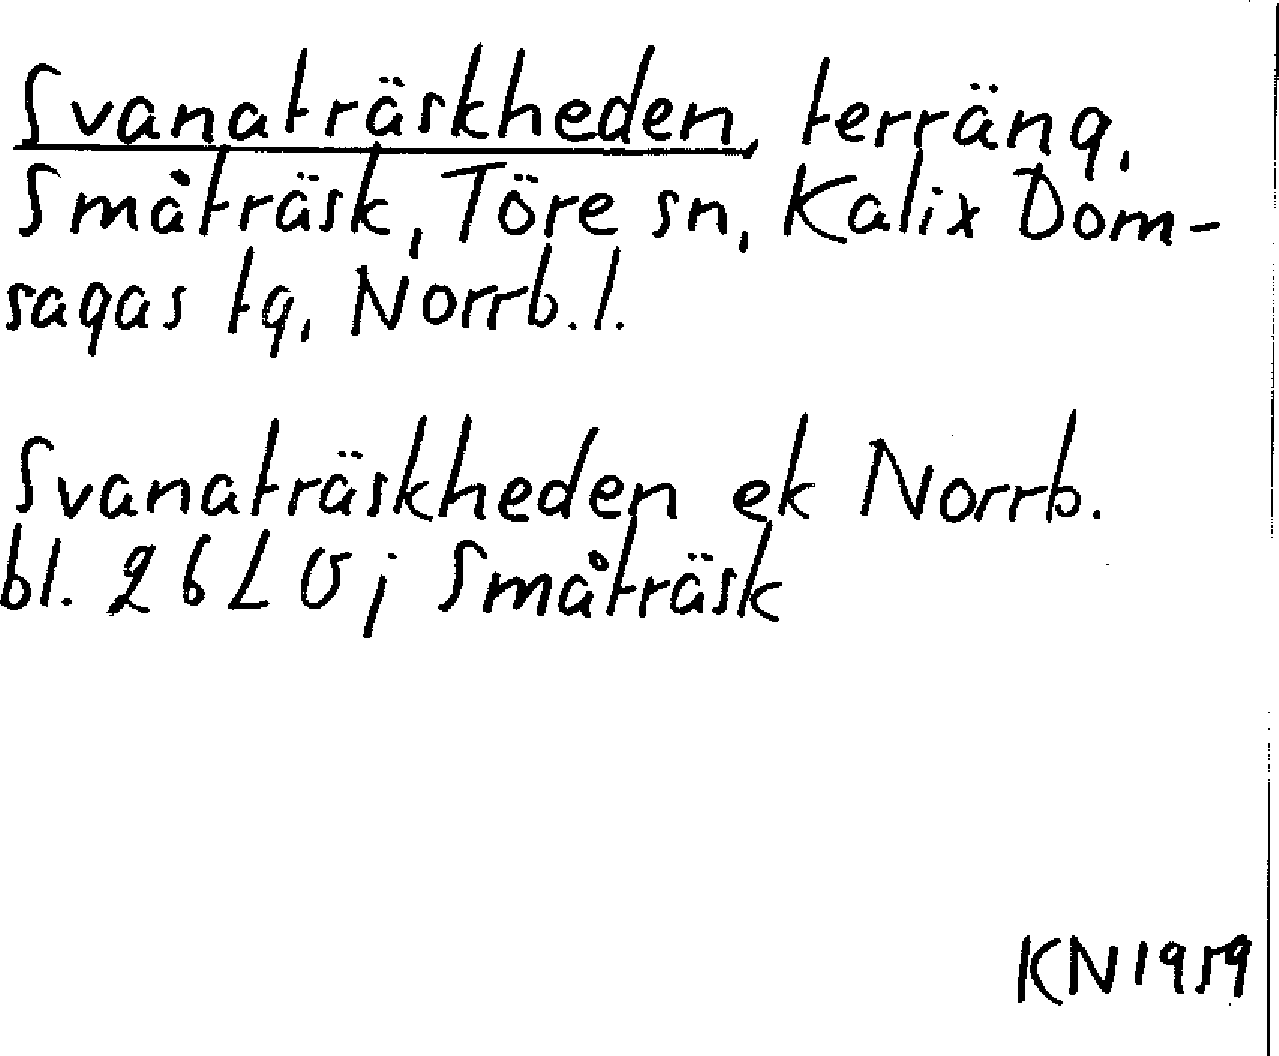 Svanaträskheden, terräng,
Småträsk, Töre sn, Kalix Dom-
sagas tg, Norrb. l.
Svanaträskheden ek Norrb.
bl. 26 L Ö; Småträsk
KN 1959